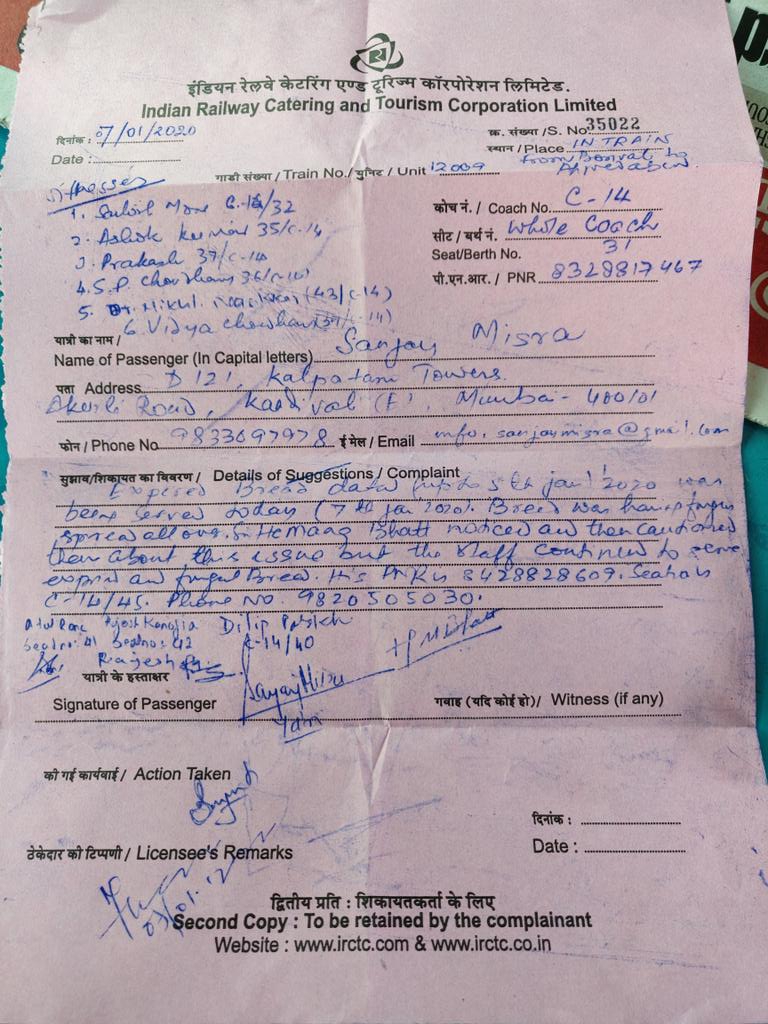 इंडियन रेलवे केटरिंग एण्ड टूरिज्म कॉरपोरेशन लिमिटेड.
Indian Railway Catering and Tourism Corporation Limited
दिनांक : 07/01/2020
Date :
क्र. संख्या /S. No 35022
स्थान / Place IN TRAIN
from Borivali to
गाडी संख्या / Train No./ युनिट / Unit 12009
1. Sahil More C-14/32
2. Ashok Kumar 35/C-14
3. Prakash 37/C-14
4. S.P. Chowhan 36/C-14)
5. Dr. (43/C-14)
6. Vidya Chowhan
कोच नं. / Coach No. C-14
सीट / बर्थ नं. Whole Coach
Seat/Berth No. 31
पी.एन.आर. / PNR 8328817467
यात्री का नाम /
Name of Passenger (In Capital letters) Sanjay Misra
पता Address D 121, Kalpataru Towers
Akurli Road, Kandivali (E), Mumbai - 400101
फोन / Phone No 9833697978 ई मेल / Email info.sanjaymisra@gmail.com
सुझाव/शिकायत का विवरण / Details of Suggestions / Complaint
Expired Bread date 5th jan' 2020 was
being served today (7th jan 2020). Bread was having fungus
spread all over. Sri Hemang Bhatt noticed and then cautioned
them about this issue but the staff continued to serve
Bread. His PNR is 8428828609. Seat no is
C-14/45. Phone NO. 9820505030.
Atul Rane Rajesh Kanojia Dilip Parekh
Seat no: 41 Seat no: 42 C-14/40
Rajesh
यात्री के हस्ताक्षर
Signature of Passenger Sanjay Misra
गवाह (यदि कोई हो)/ Witness (if any)
की गई कार्यवाई / Action Taken
दिनांक :
ठेकेदार की टिप्पणी / Licensee's Remarks
Date :
द्वितीय प्रति : शिकायतकर्ता के लिए
Second Copy : To be retained by the complainant
Website : www.irctc.com & www.irctc.co.in